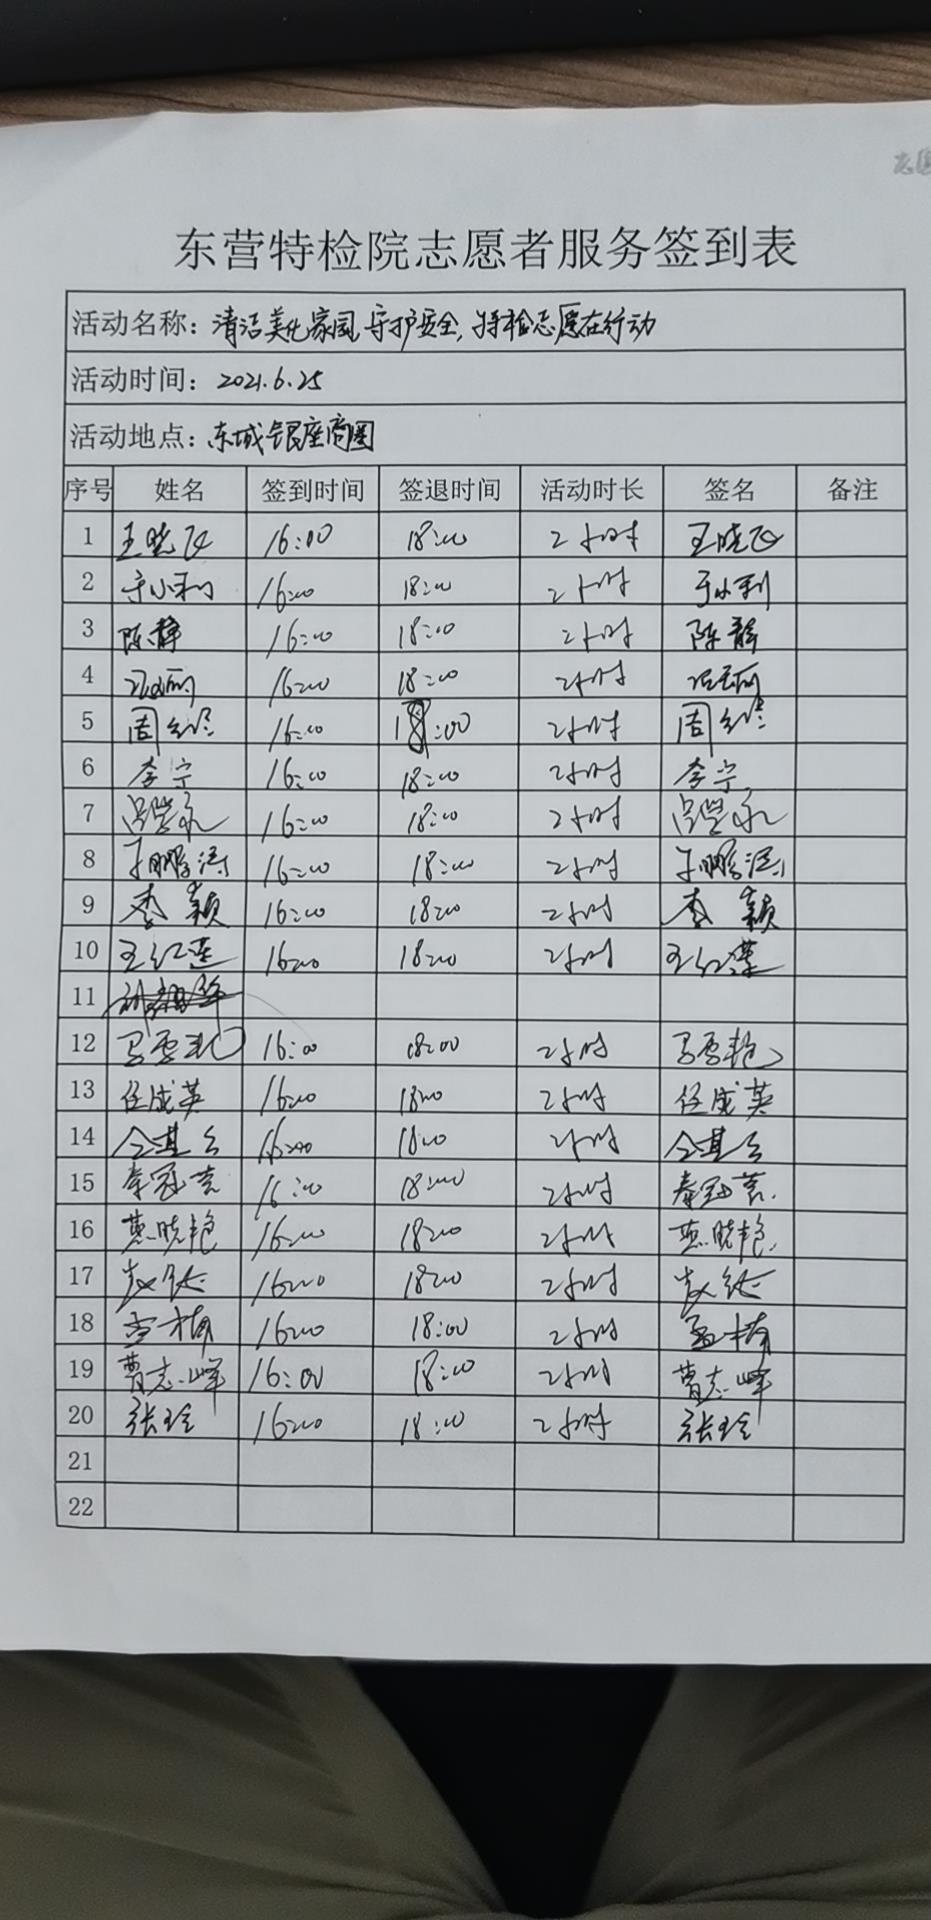 东营特检院志愿者服务签到表
活动名称：清洁美化家园,守护安全,特检志愿在行动
活动时间：2021.6.25
活动地点：东城银座商圈
序号 姓名 签到时间 签退时间 活动时长 签名 备注
1 王晓飞 16:00 18:00 2小时 王晓飞
2 于小利 16:00 18:00 2小时 于小利
3 陈静 16:00 18:00 2小时 陈静
4 16:00 18:00 2小时
5 周 16:00 18:00 2小时 周
6 李宁 16:00 18:00 2小时 李宁
7 吕 永 16:00 18:00 2小时 吕 永
8 于鹏涛 16:00 18:00 2小时 于鹏涛
9 李颖 16:00 18:00 2小时 李颖
10 王红莲 16:00 18:00 2小时 王红莲
11
12 马雪艳 16:00 18:00 2小时 马雪艳
13 任成英 16:00 18:00 2小时 任成英
14 16:00 18:00 2小时
15 秦冠 16:00 18:00 2小时 秦冠
16 燕晓艳 16:00 18:00 2小时 燕晓艳
17 16:00 18:00 2小时
18 孟楠 16:00 18:00 2小时 孟楠
19 曹志峰 16:00 18:00 2小时 曹志峰
20 张玲 16:00 18:00 2小时 张玲
21
22